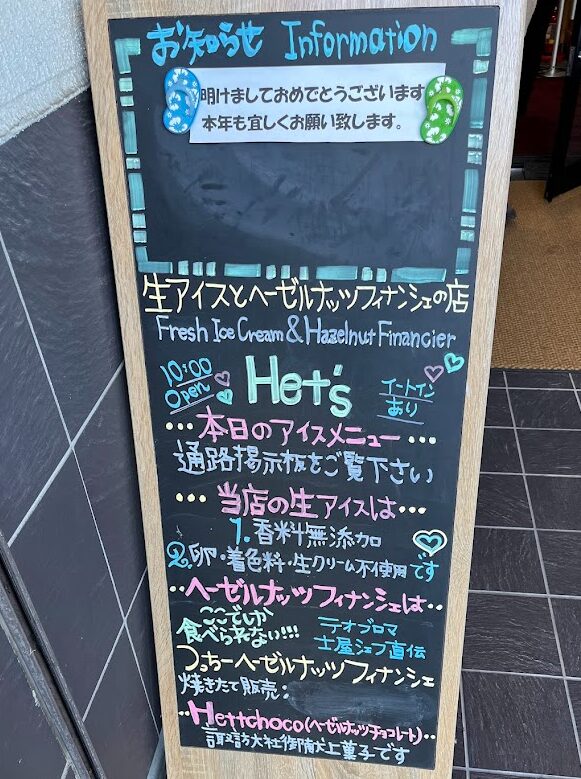 お知らせ Information
明けましておめでとうございます
本年も宜しくお願い致します。
生アイスとヘーゼルナッツフィナンシェの店
Fresh Ice Cream & Hazelnut Financier
10:00
Open
Het's
イートイン
あり
…本日のアイスメニュー…
通路掲示板をご覧下さい
…当店の生アイスは…
1.香料無添加
2.卵・着色料・生クリーム不使用です
…ヘーゼルナッツフィナンシェは…
ここでしか
食べられない!!!
テオブロマ
土屋シェフ直伝
つっちーヘーゼルナッツフィナンシェ
焼きたて販売:
…Hettchoco(ヘーゼルナッツチョコレート)…
諏訪大社御献上菓子です